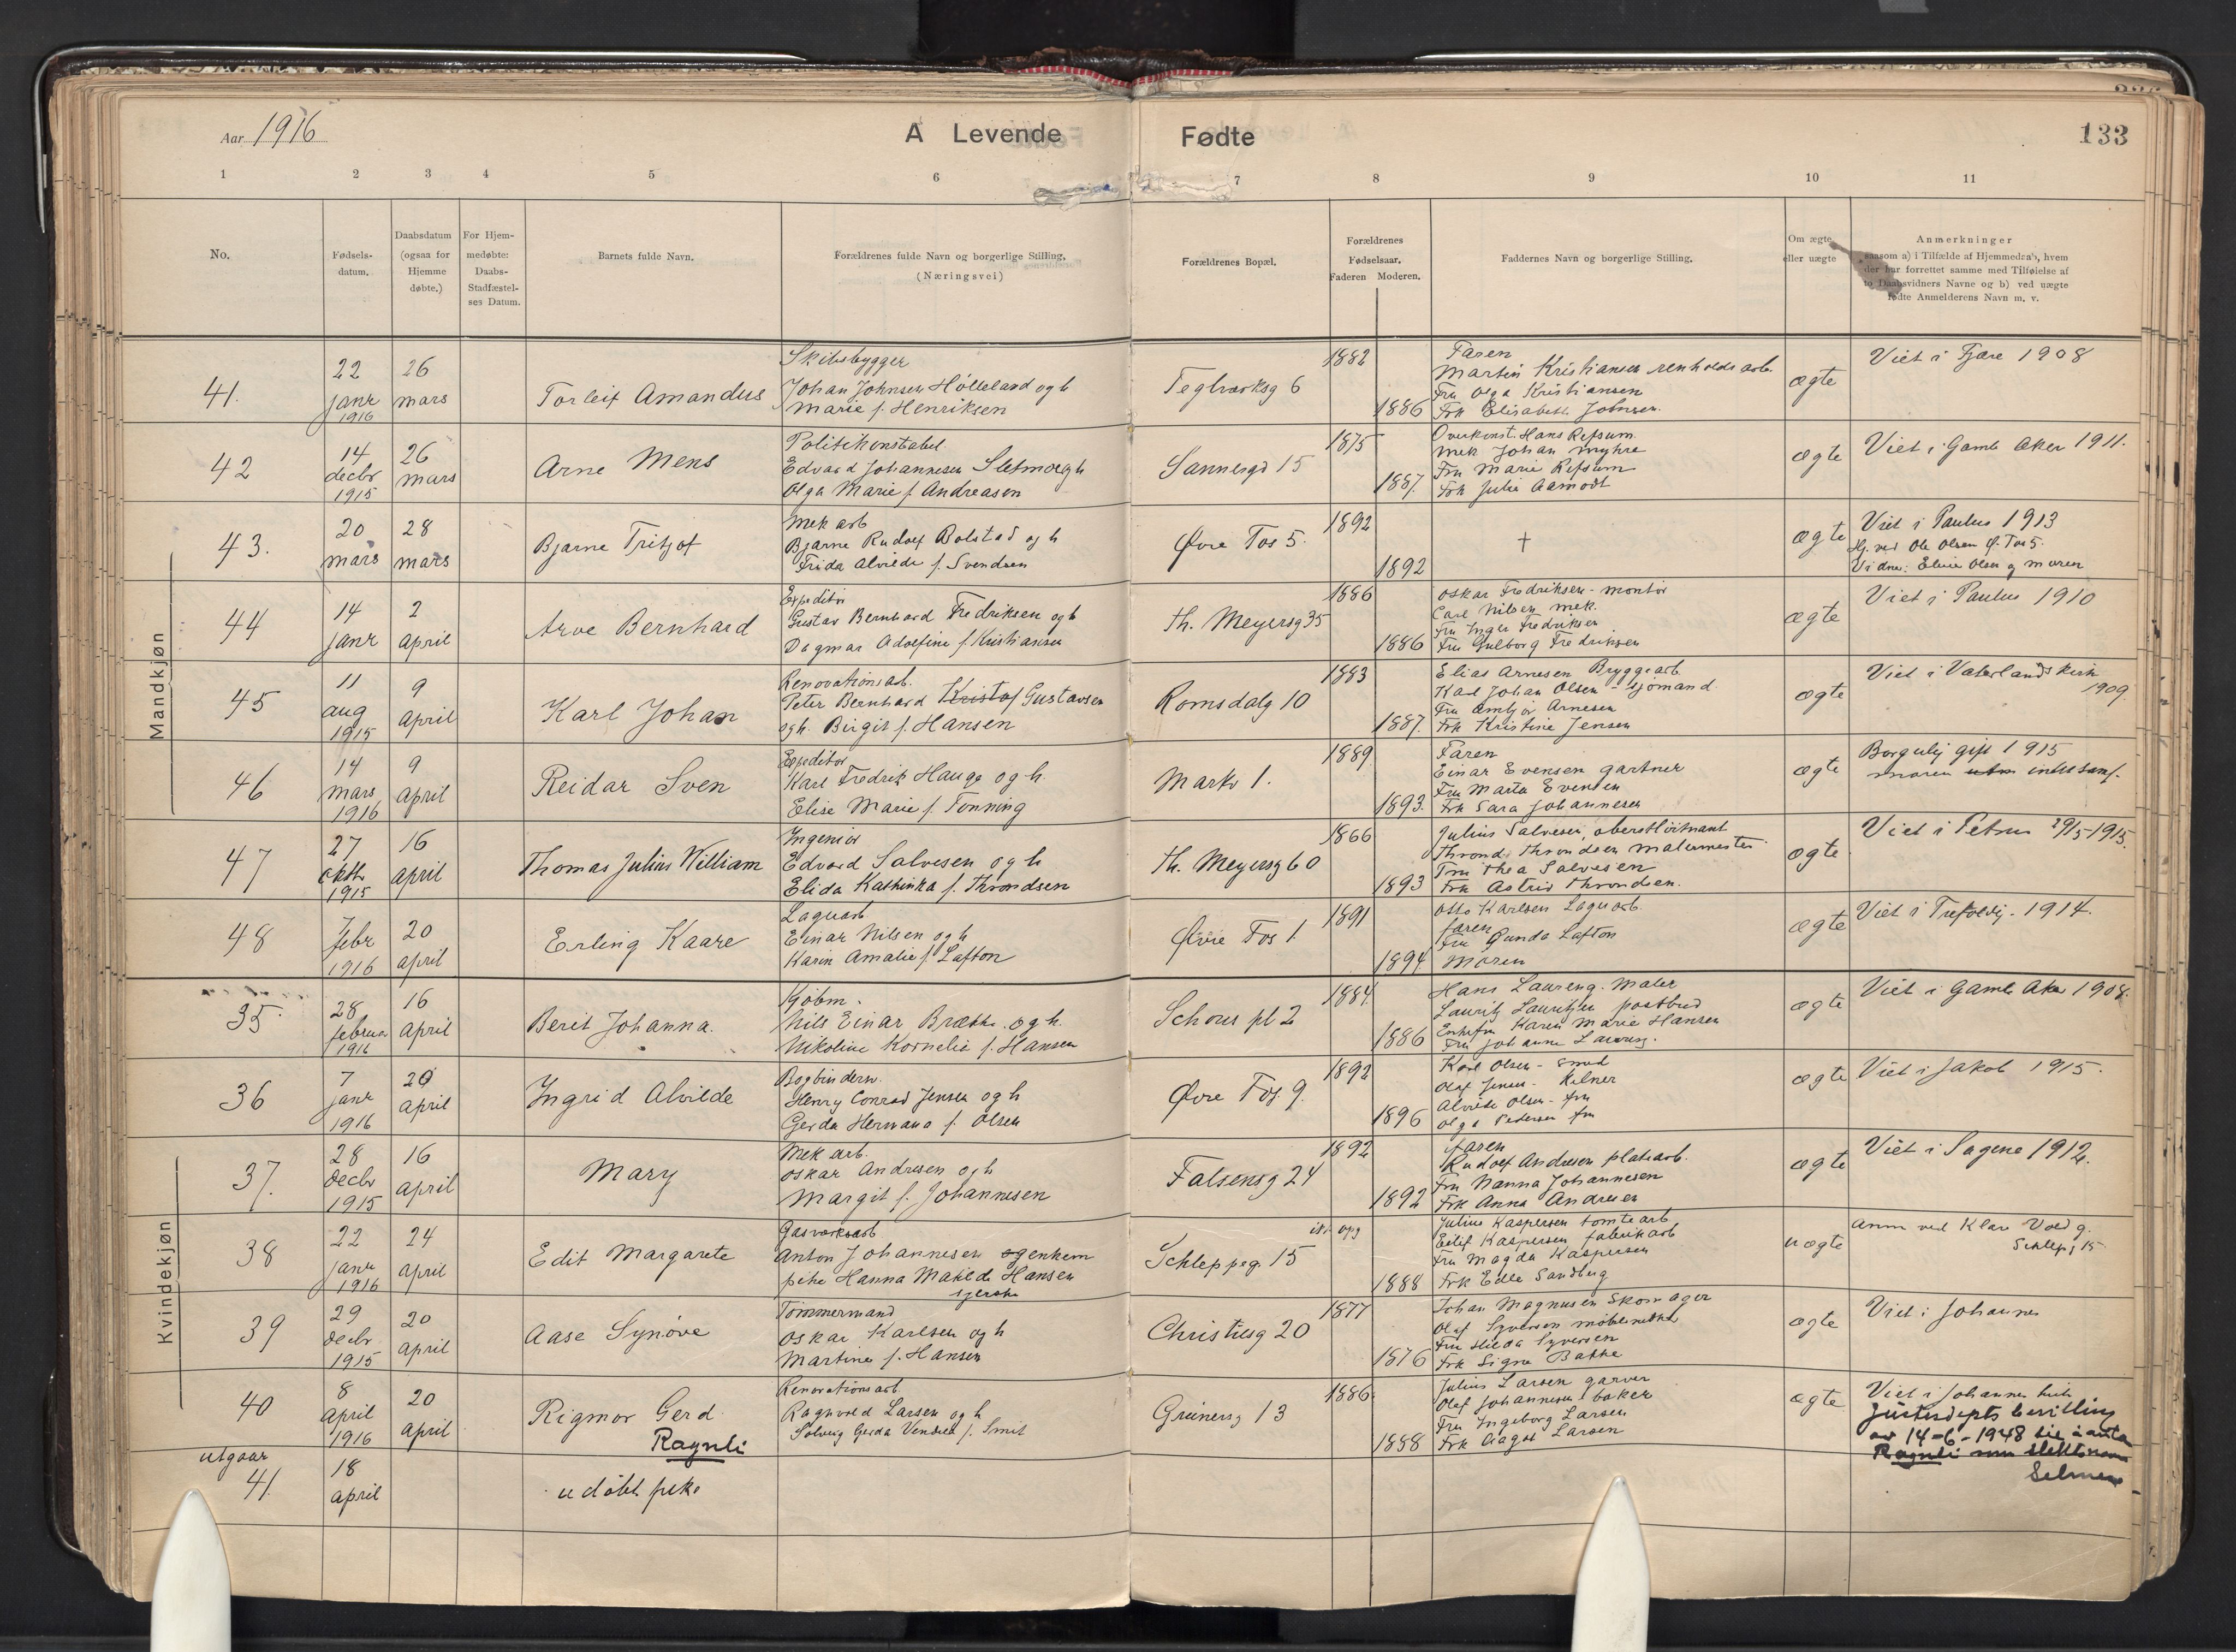 Aar 1916
A Levende Fødte
133
1 2 3 4 5 6 7 8 9 10 11
No.
Fødsels-
datum.
Daabsdatum
(ogsaa for
Hjemme
døbte.)
For Hjem-
medøbte:
Daabs-
Stadfæstel-
ses Datum.
Barnets fulde Navn.
Forældrenes fulde Navn og borgerlige Stilling.
(Næringsvei)
Forældrenes Bopæl.
Forældrenes
Fødselsaar.
Faderen Moderen.
Faddernes Navn og borgerlige Stilling.
Om ægte
eller uægte
Anmerkninger
saasom a) i Tilfælde af Hjemmedaab, hvem
der har forrettet samme med Tilføielse af
to Daabsvidners Navne og b) ved uægte
fødte Anmelderens Navn m. v.
Mandkjøn
41.
22
janr
1916
26
mars
Torleif Amandus
Skibsbygger
Johan Johnsen Hölleland og h
Marie f. Henriksen
Teglverksg 6
1882
1886
Faren
Martin Kristiansen renholdsarb.
Fru Olga Kristiansen
Frk Elisabeth Johnsen.
ægte
Viet i Fjære 1908
42
14
decbr
1915
26
mars
Arne Mens
Politikonstabel
Edvard Johannesen Sletmo og h
Olga Marie f. Andreasen
Sannergd 15
1875
1887.
Overkonst. Hans Refsum
Mek Johan Myhre
Fru Marie Refsum
Frk Julie Aamodt
ægte
Viet i Gamle Aker 1911.
43.
20
mars
28
mars
Bjarne Fritjof
Mek arb
Bjarne Rudolf Bolstad og h
Frida Alvilde f. Svendsen
Øvre Fos 5.
1892
1892
†
ægte
Viet i Paulus 1913
Hj. ved Ole Olsen Ø. Fos 5.
Vidner: Elvine Olsen og moren
44
14
janr
2
april
Arve Bernhard
Expeditør
Gustav Bernhard Fredriksen og h
Dagmar Adolfine f. Kristiansen
Th. Meyersg 35
1886
1886
Oskar Fredriksen - montør
Carl Nilsen mek.
Fru Inger Fredriksen
Fru Gulborg Fredriksen
ægte
Viet i Paulus 1910
45
11
aug
1915
9
april
Karl Johan
Renovationsarb.
Peter Bernhard Kristof Gustavsen
og h. Birgit f. Hansen
Romsdalg 10
1883
1887.
Elias Arnesen Bryggearb
Karl Johan Olsen - sjømand
Fru Ambjør Arnesen
Frk Kristine Jensen
ægte
Viet i Vaterlands kirke
1909.
46
14
mars
1916
9
april
Reidar Sven
Expeditør
Karl Fredrik Hauge og h.
Elise Marie f. Tonning
Markv 1.
1889
1893.
Faren
Einar Evensen gartner
Fru Marta Evensen
Frk Sara Johannesen
ægte
Borgerlig gift 1915
moren
47
27
oktbr
1915
16
april
Thomas Julius William
Ingeniør
Edvard Salvesen og h
Elida Kathinka f. Throndsen
Th. Meyersg 60
1866
1893
Julius Salvesen, oberstløitnant
Thrond Throndsen malermester
Fru Thea Salvesen
Frk Astrid Throndsen.
ægte
Viet i Petrus 29/5-1915.
48
7
febr
1916
20
april
Erling Kaare
Lagerarb
Einar Nilsen og h
Karen Amalie f. Lafton
Øvre Fos 1.
1891
1894.
Otto Karlsen Lagerarb.
faren
Fru Gunda Lafton
Moren
ægte
Viet i Trefoldig. 1914.
Kvindekjøn
35.
28
februar
1916
16
april
Berit Johanna.
Kjøbm.
Nils Einar Brække. og h.
Nikoline Kornelia f. Hansen
Schous pl 2
1884.
1886
Hans Laureng. Maler
Lauritz Lauritzen postbud
Enkefru Karen Marie Hansen
Fru Johanne Laureng.
ægte
Viet i Gamle Aker 1908.
36
7
janr
1916
20
april
Ingrid Alvilde
Bogbinderv.
Henry Conrad Jensen og h
Gerda Hermana f. Olsen
Øvre Fos. 9.
1892
1896
Karl Olsen - Smed
Olaf Jensen - Kelner
Alvilde Olsen - fru
Olga Pedersen fru
ægte
Viet i Jakob 1915.
37.
28
decbr
1915
16
april
Mary
Mek arb.
Oskar Andresen og h
Margit f. Johannesen
Falsensg 24
1892
1892
faren
Rudolf Andresen platearb.
Fru Nanna Johannesen
Frk Anna Andresen
ægte
Viet i Sagene 1912.
38
22
janr
1916
24
april
Edit Margarete
Gasverksarb
Anton Johannesen og enkem
pike Hanna Matilde Hansen
Schleppeg. 15
ik. opg
1888
Julius Kaspersen tomtearb
Eilif Kaspersen fabrikarb
Fru Magda Kaspersen
Frk Edle Sandberg
uægte
Anm ved Klare
Schlep. 15
39
29
decbr
1915
20
april
Aase Synøve
Tømmermand
Oskar Karlsen og h
Martine f. Hansen
Christiesg 20
1877
1876
Johan Magnusen Skomager
Olaf Syversen møbelsnedker
Fru Hilda Syversen
Frk Signe Bakke
ægte
Viet i Johannes
40
8
april
1916
20
april
Rigmor Gerd
Ragnli
Renovationsarb
Ragnvald Larsen og h
Solveig Gerda Vendela f. Smit
Grünersg 13
1886.
1888
Julius Larsen garver
Olaf Johannesen baker
Fru Ingeborg Larsen
Frk Aagot Larsen
ægte
Viet i Johannes kirke
Justisdepts bevilling
av 14-6-1948 til å anta
Ragnli som slektsnavn
Selmer
utgaar
41.
18
april
udøbt pike